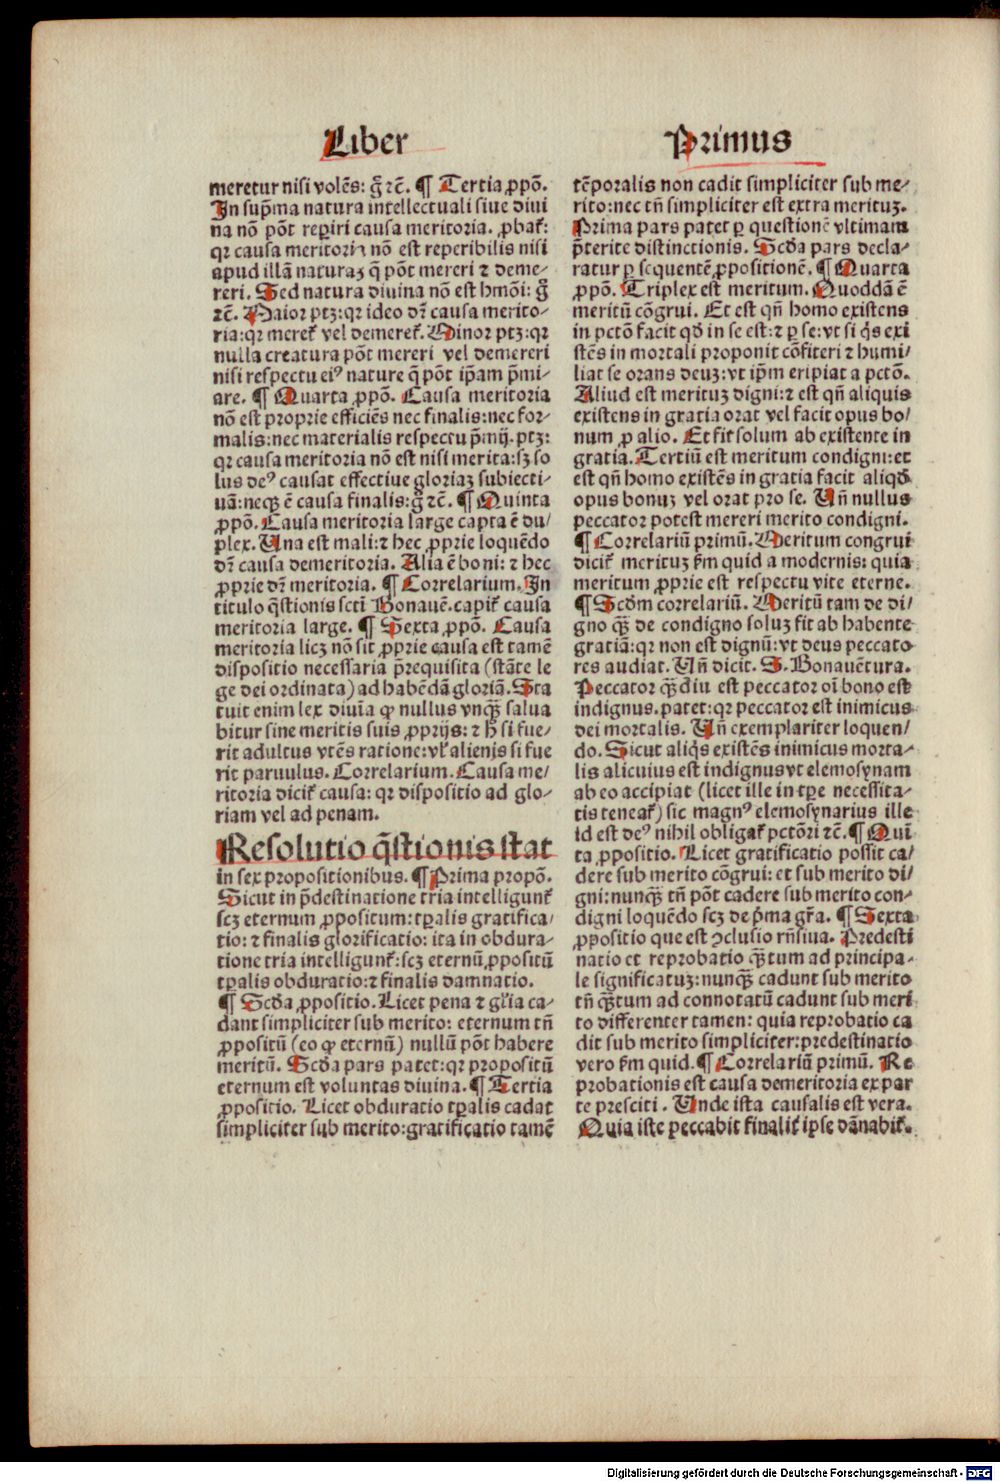 Liber
Primus
meretur nisi volẽs: g̃ rc̃. ¶ Tertia ꝓpõ.
In sup̃ma natura intellectuali siue diui
na nõ põt reperiri causa meritoria. ꝓbat᷑:
qr causa meritoria nõ est reperibilis nisi
apud illã naturaꝫ q̃ põt mereri ⁊ deme-
reri. Sed natura diuina nõ est hmõi: g̃
⁊c̃. Maior ptꝫ: qr ideo dr̃ causa merito-
ria: qr meret᷑ vel demeret᷑. Minor ptꝫ: qr
nulla creatura põt mereri vel demereri
nisi respectu eiꝰ nature q̃ põt ip̃am p̃mi-
are. ¶ Quarta ꝓpõ. Causa meritoria
nõ est proprie efficiẽs nec finalis: nec for-
malis: nec materialis respectu p̃mij. ptꝫ:
qr causa meritoria nõ est nisi merita: sꝫ so
lus deꝰ causat effectiue gloriaꝫ subiecti-
uã: neqꝫ ẽ causa finalis: g̃ ⁊c̃. ¶ Quinta
ꝓpõ. Causa meritoria large capta ẽ du/
plex. Una est mali: ⁊ hec ꝓprie loquẽdo
dr̃ causa demeritoria. Alia ẽ boni: ⁊ hec
ꝓprie dr̃ meritoria. ¶ Correlarium. In
titulo q̃stionis scti Bonauẽ. capit᷑ causa
meritoria large. ¶ Sexta ꝓpõ. Causa
meritoria licꝫ nõ sit ꝓprie causa est tamẽ
dispositio necessaria p̃requisita (stãte le
ge dei ordinata) ad habẽdã gloriã. Sta
tuit enim lex diuĩa ꝙ nullus vnqꝫ̃ salua
bitur sine meritis suis ꝓprijs: ⁊ h̃ si fue-
rit adultus vtẽs ratione: vl᷑ alienis si fue
rit paruulus. Correlarium. Causa me/
ritoria dicit᷑ causa: qr dispositio ad glo-
riam vel ad penam.
Resolutio q̃stionis stat
in sex propositionibus. ¶ Prima propõ.
Sicut in p̃destinatione tria intelligunt᷑
scꝫ eternum ꝓpositum: tꝑalis gratifica/
tio: ⁊ finalis glorificatio: ita in obdura-
tione tria intelligunt᷑: scꝫ eternũ ꝓpositũ
tꝑalis obduratio: ⁊ finalis damnatio.
¶ Scđa ꝓpositio. Licet pena ⁊ gl᷑ia ca-
dant simpliciter sub merito: eternum tñ
ꝓpositũ (eo ꝙ eternũ) nullũ põt habere
meritũ. Scđa pars patet: qr propositũ
eternum est voluntas diuina. ¶ Tertia
ꝓpositio. Licet obduratio tꝑalis cadat
simpliciter sub merito: gratificatio tamẽ
tẽporalis non cadit simpliciter sub me/
rito: nec tñ simpliciter est extra merituꝫ.
Prima pars patet ꝑ questionẽ vltimam
p̃terite distinctionis. Scđa pars decla-
ratur ꝑ sequentẽ ꝓpositionẽ. ¶ Quarta
ꝓpõ. Triplex est meritum. Quoddã ẽ
meritũ cõgrui. Et est qñ homo existens
in pctõ facit qđ in se est: ⁊ ꝑ se: vt si q̃s exi
stẽs in mortali proponit cõfiteri ⁊ humi/
liat se orans deuꝫ: vt ip̃m eripiat a pctõ.
Aliud est merituꝫ digni: ⁊ est qñ aliquis
existens in gratia orat vel facit opus bo/
num ꝓ alio. Et fit solum ab existente in
gratia. Tertiũ est meritum condigni: et
est qñ homo existẽs in gratia facit aliqđ
opus bonuꝫ vel orat pro se. Uñ nullus
peccator potest mereri merito condigni.
¶ Correlariũ primũ. Meritum congrui
dicit᷑ merituꝫ ẜm quid a modernis: quia
meritum ꝓprie est respectu vite eterne.
¶ Scđm correlariũ. Meritũ tam de di/
gno qꝫ̃ de condigno soluꝫ fit ab habente
gratiã: qr non est dignũ: vt deus peccato
res audiat. Uñ dicit. S. Bonauẽtura.
Peccator qꝫ̃diu est peccator oĩ bono est
indignus. patet: qr peccator est inimicus
dei mortalis. Uñ exemplariter loquen/
do. Sicut aliq̃s existẽs inimicus morta-
lis alicuius est indignus vt elemosynam
ab eo accipiat (licet ille in tꝑe necessita-
tis teneat᷑) sic magnꝰ elemosynarius ille
id est deꝰ nihil obligat᷑ pctõri ⁊c̃. ¶ Quĩ
ta ꝓpositio. Licet gratificatio possit ca/
dere sub merito cõgrui: et sub merito di/
gni: nunqꝫ̃ tñ põt cadere sub merito con-
digni loquẽdo scꝫ de p̃ma gr̃a. ¶ Sexta
ꝓpositio que est ↄclusio rñsiua. Predesti
natio et reprobatio qꝫ̃tum ad principa-
le significatuꝫ: nunqꝫ̃ cadunt sub merito
tñ qꝫ̃tum ad connotatũ cadunt sub meri
to differenter tamen: quia reprobatio ca
dit sub merito simpliciter: predestinatio
vero ẜm quid. ¶ Correlariũ primũ. Re
probationis est causa demeritoria ex par
te presciti. Unde ista causalis est vera.
Quia iste peccabit finalit᷑ ipse dãnabit᷑.
Digitalisierung gefördert durch die Deutsche Forschungsgemeinschaft - DFG